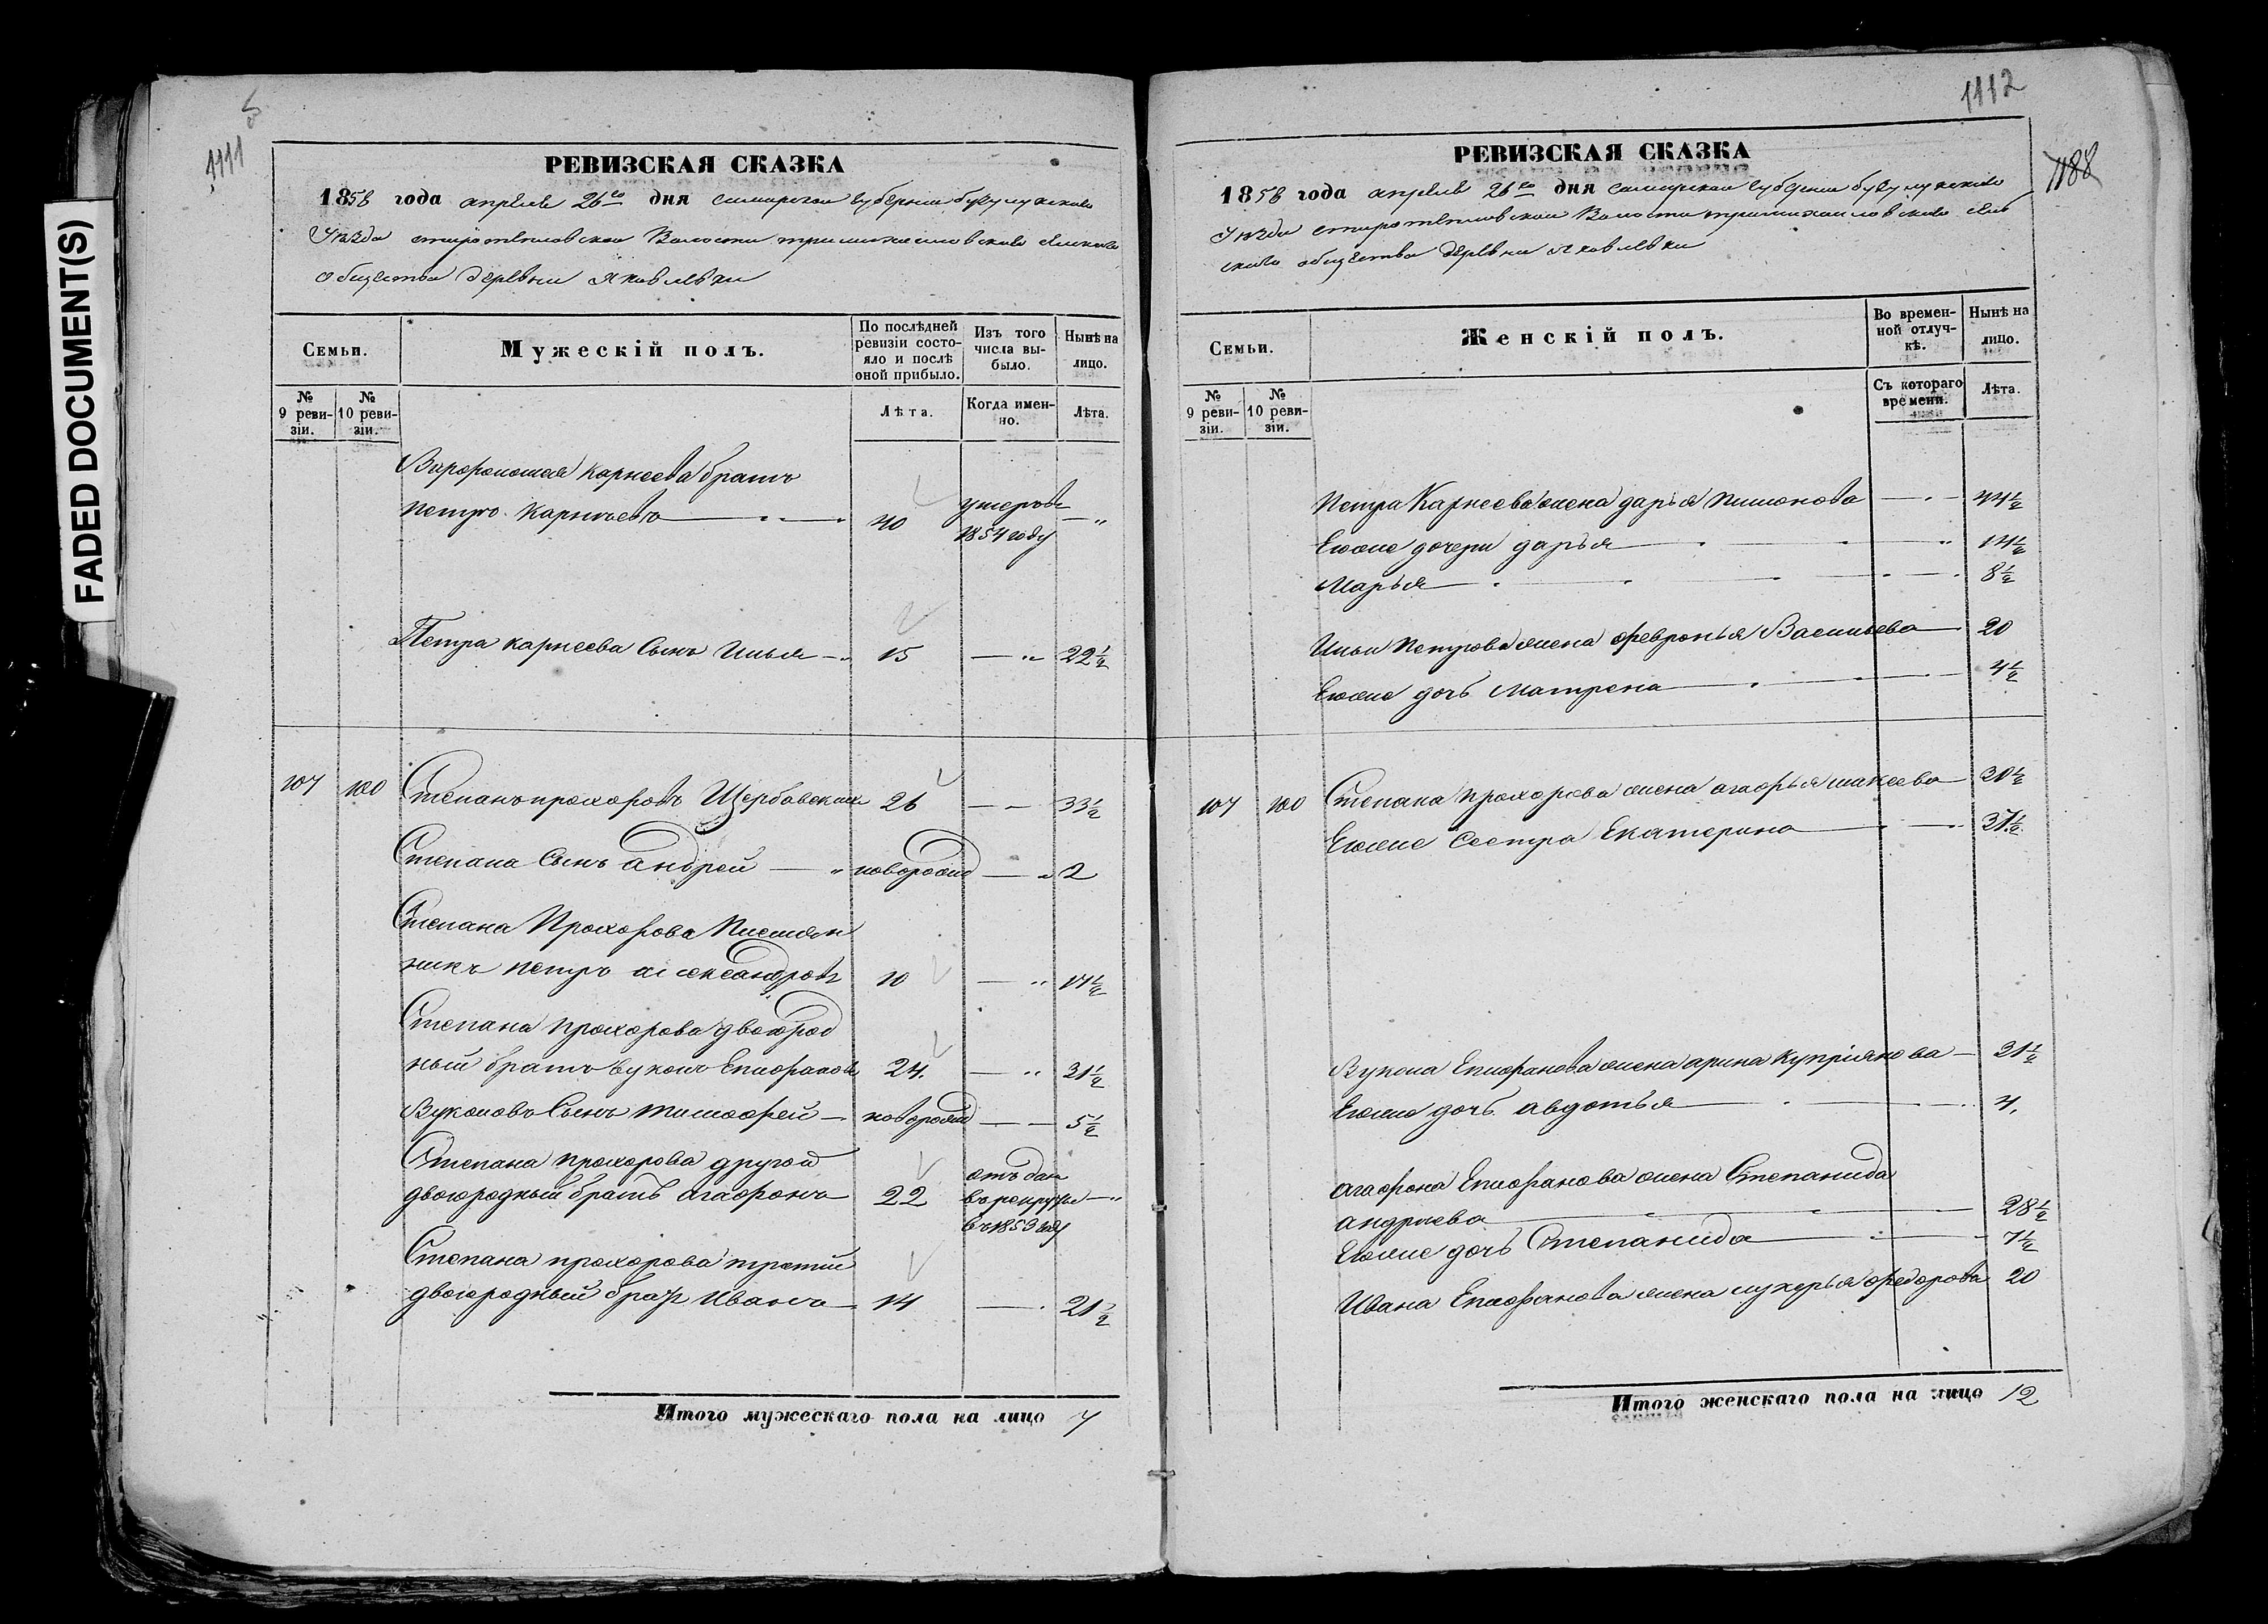 FADED DOCUMENT(S)
1111
РЕВИЗСКАЯ СКАЗКА
1858 года апреля 26го дня самарской губернии бузулукскаго
Уезда старотепловской Волости тримихаиловскаго сельскаго
общества деревни Яковлевки
Семьи.
Мужескій полъ.
По послѣдней ревизіи состояло и послѣ оной прибыло.
Изъ того числа выбыло.
Нынѣ на лицо.
№ 9 ревизіи.
№ 10 ревизіи.
Лѣта.
Когда именно.
Лѣта.
Варфоломея Карнеева братъ
Петръ Карнеевъ 40 умеръ в 1854 году — "
Петра карнеева Сынъ Илья 15 — " 22½
107 100 Степанъ прохоровъ Щербавских 26 — 33½
Степана Сынъ андрей — " новорожд — " 2
Степана Прохорова Племян
никъ петръ александровъ 10 — " 17½
Степана прохорова двоюрод
ный братъ вуколъ Епифановъ 24. — " 31½
Вуколовъ Сынъ тимофей — новорожд — 5½
Степана прохорова другой
двоюродный братъ агафонъ 22 отъдан
в рекруты — "
въ 1853 году
Степана прохорова третий
двоюродный братъ Иванъ 14 — 21½
Итого мужескаго пола на лицо 7
1112
1188
РЕВИЗСКАЯ СКАЗКА
1858 года апреля 26го дня самарской губернии бузулукскаго
Уезда старотепловской Волости тримихаиловскаго сель
скаго общества деревни Яковлевки
Семьи.
Женскій полъ.
Во временной отлучкѣ.
Нынѣ на лицо.
№ 9 ревизіи.
№ 10 ревизіи.
Съ котораго времени.
Лѣта.
Петра Карнеева жена дарья пименова — 44½
Егоже дочери дарья — " 14½
Марья — 8½
Ильи Петрова жена февронья Васильева 20
Егоже дочь матрена — 4½
107 100 Степана прохорова жена агафья макеева 30½
Егоже Сестра Екатерина — 31½
Вукола Епифанова жена арина куприянова — 31½
Егоже дочь авдотья — 4.
агафона Епифанова жена Степанида
андреева — 28½
Егоже дочь Степанида — 7½
Ивана Епифанова жена лукерья федорова 20
Итого женскаго пола на лицо 12